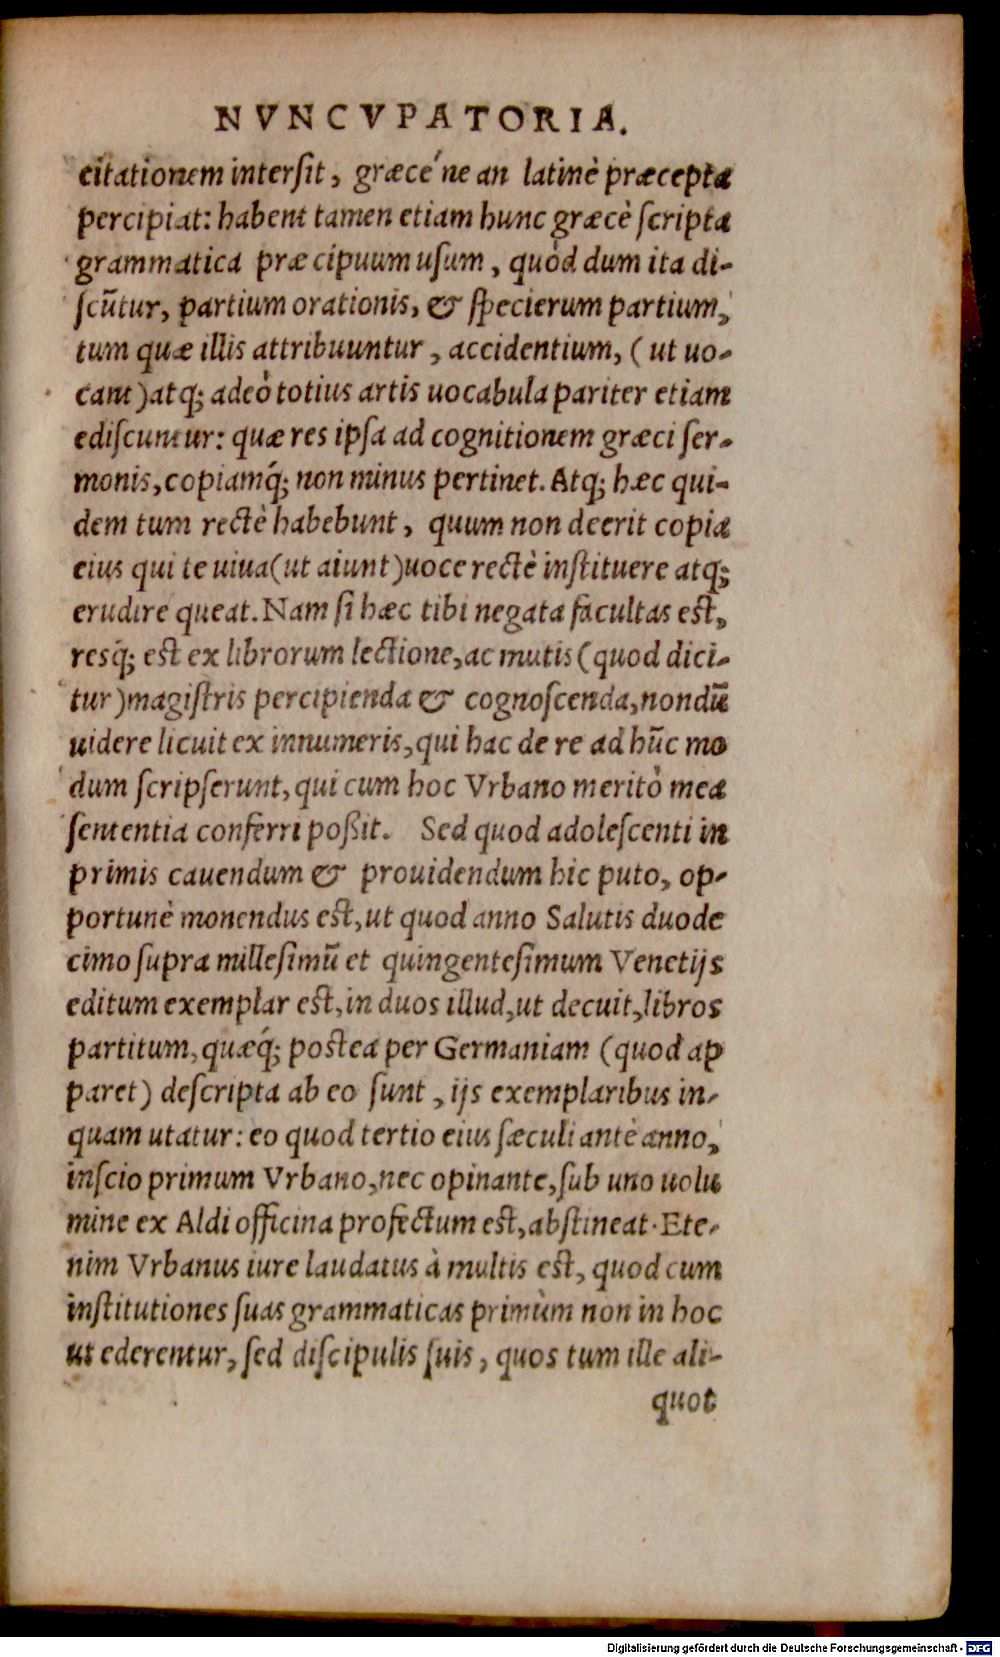 NVNCVPATORIA.
citationem intersit, græcé ne an latinè præcepta
percipiat: habent tamen etiam hunc græcè scripta
grammatica præcipuum usum, quòd dum ita di-
scũtur, partium orationis, & specierum partium,
tum quæ illis attribuuntur, accidentium, (ut uo-
cant) atq; adeò totius artis uocabula pariter etiam
ediscuntur: quæ res ipsa ad cognitionem græci ser-
monis, copiamq́; non minus pertinet. Atq; hæc qui-
dem tum rectè habebunt, quum non deerit copia
eius qui te uiua (ut aiunt) uoce rectè instituere atq;
erudire queat. Nam si hæc tibi negata facultas est,
resq́; est ex librorum lectione, ac mutis (quod dici-
tur) magistris percipienda & cognoscenda, nondũ
uidere licuit ex innumeris, qui hac de re ad hũc mo
dum scripserunt, qui cum hoc Vrbano meritò mea
sententia conferri poßit. Sed quod adolescenti in
primis cauendum & prouidendum hic puto, op-
portunè monendus est, ut quod anno Salutis duode
cimo supra millesimũ et quingentesimum Venetijs
editum exemplar est, in duos illud, ut decuit, libros
partitum, quæq́; postea per Germaniam (quod ap
paret) descripta ab eo sunt, ijs exemplaribus in-
quam utatur: eo quod tertio eius sæculi antè anno,
inscio primum Vrbano, nec opinante, sub uno uolu
mine ex Aldi officina profectum est, abstineat. Ete-
nim Vrbanus iure laudatus à multis est, quod cum
institutiones suas grammaticas primùm non in hoc
ut ederentur, sed discipulis suis, quos tum ille ali-
quot
Digitalisierung gefördert durch die Deutsche Forschungsgemeinschaft - DFG